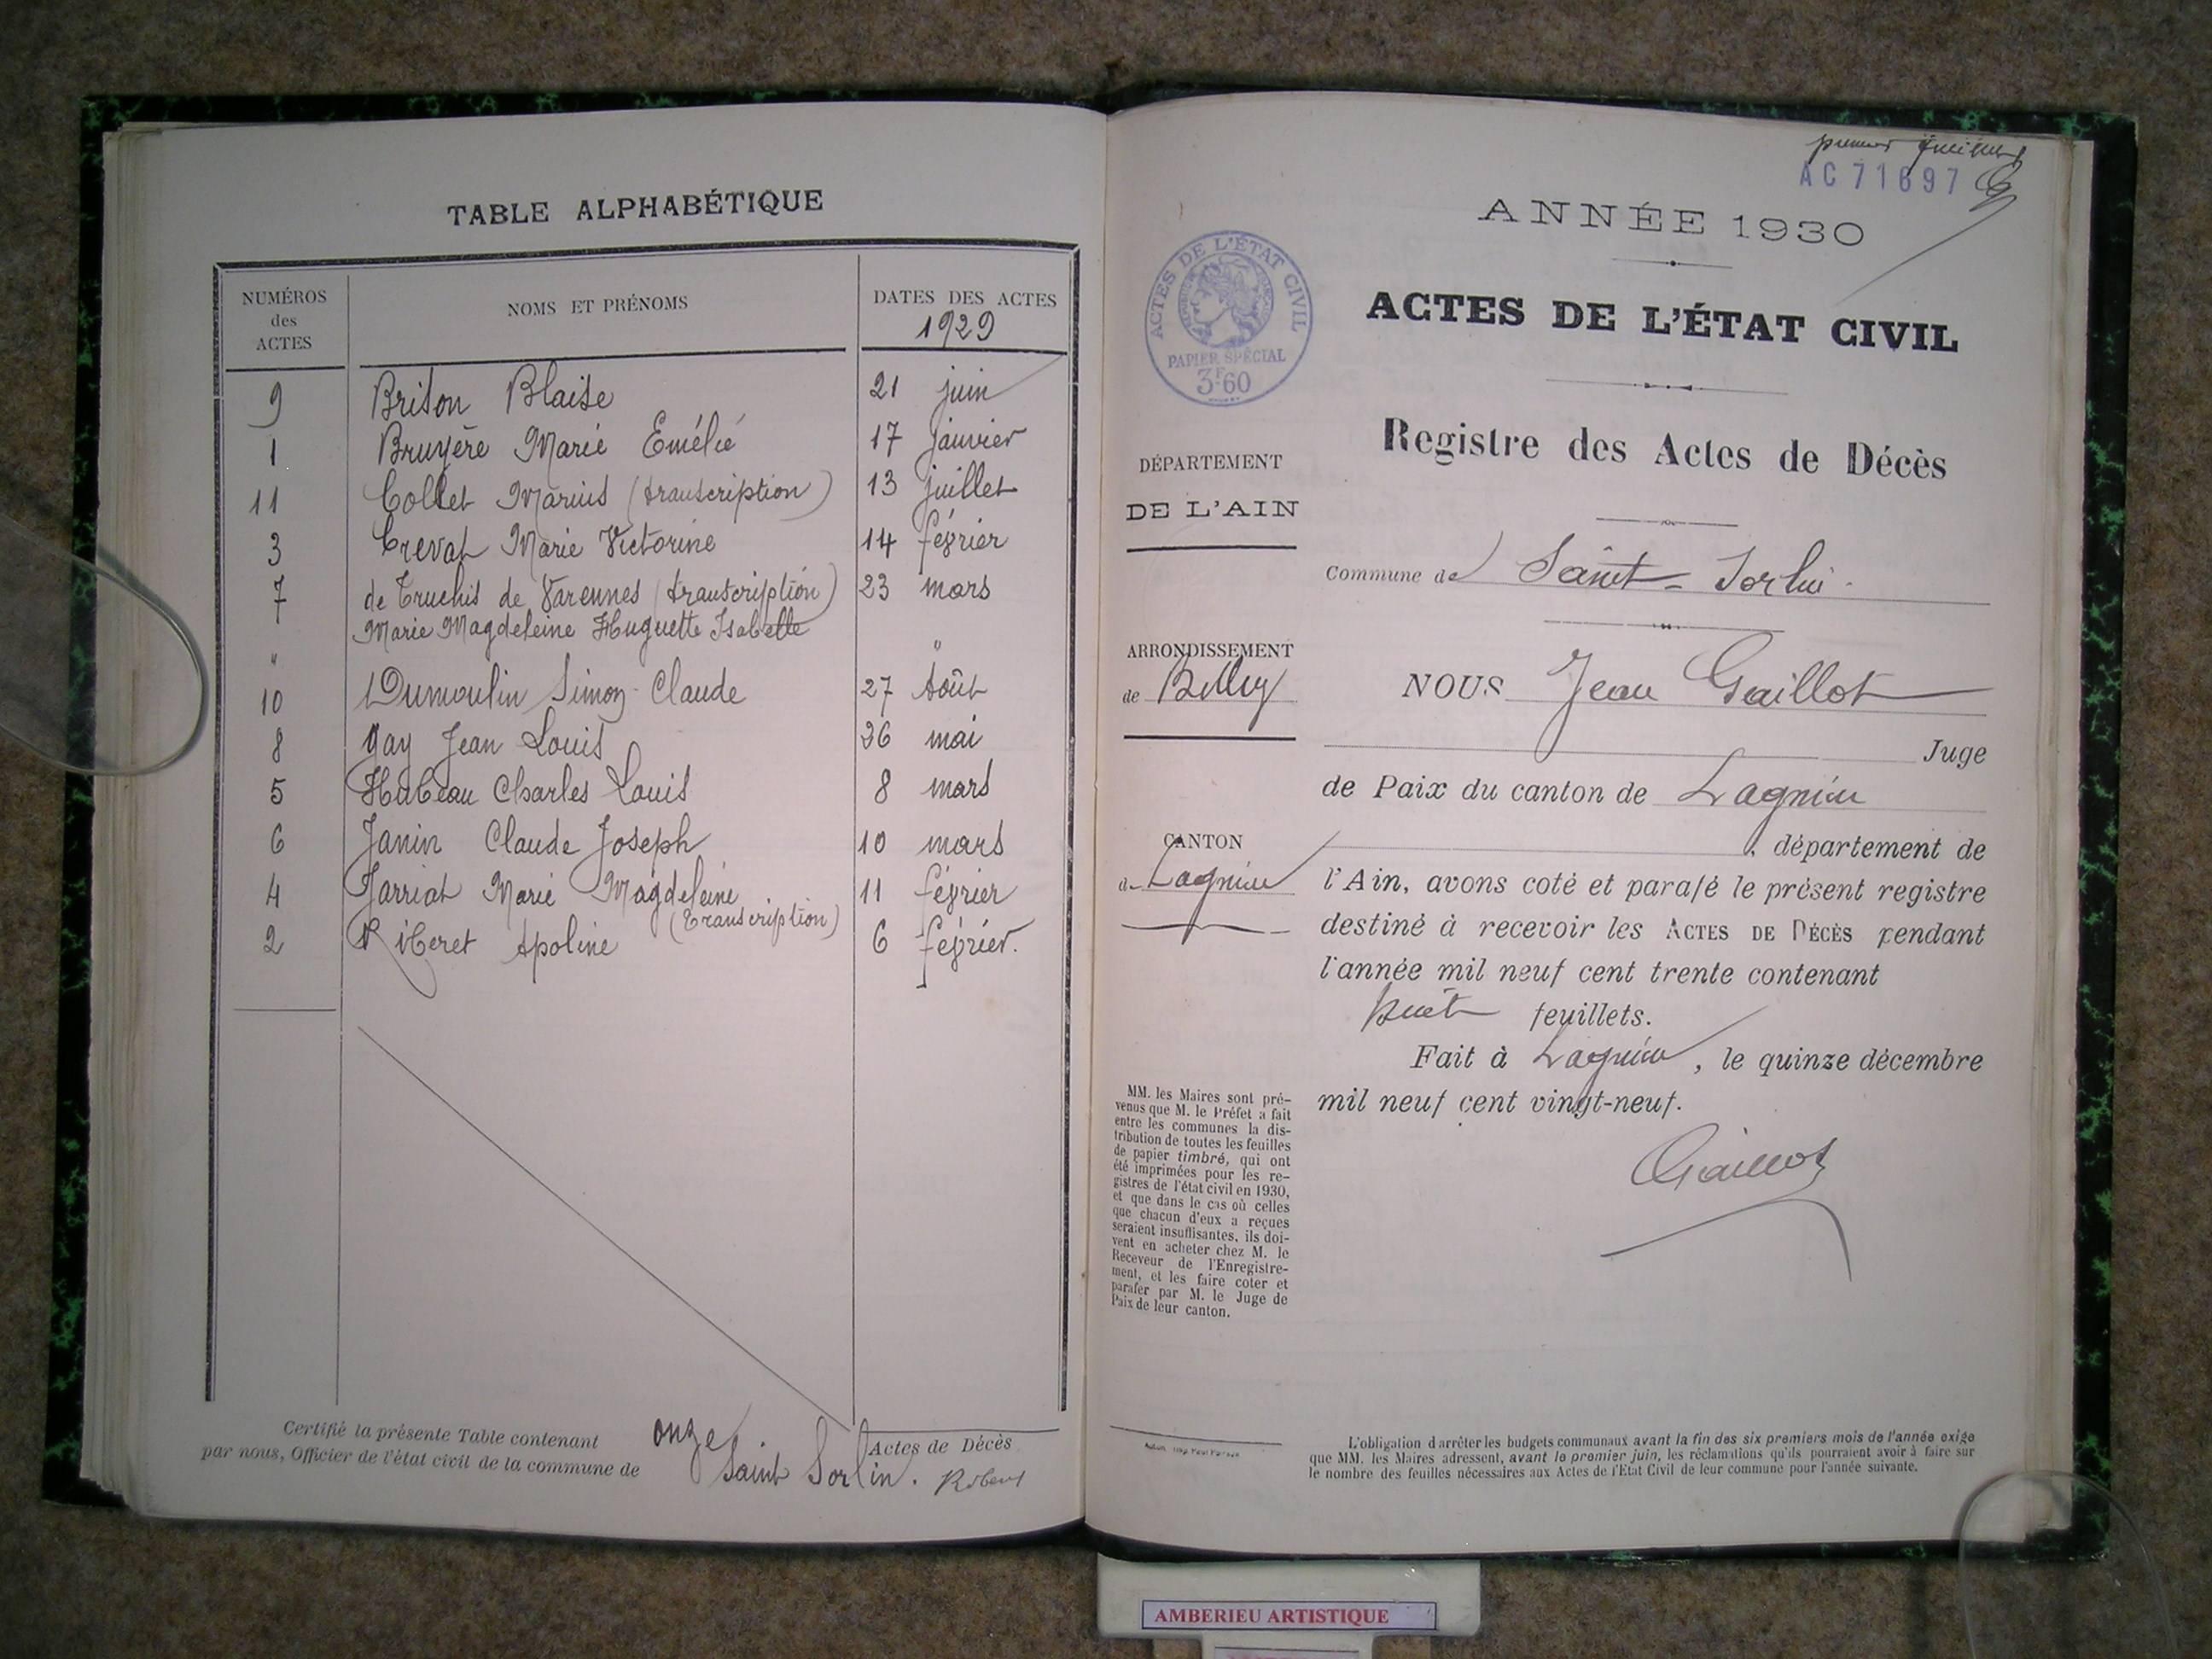 TABLE ALPHABÉTIQUE
NUMÉROS des ACTES
NOMS ET PRÉNOMS
DATES DES ACTES
1929
9 Briton Blaise 21 juin
1 Bruyère Marie Emélie 17 janvier
11 Collet Marius (transcription) 13 juillet
3 Crevat Marie Victorine 14 février
7 de Truchis de Varennes (transcription) 23 mars
Marie Magdeleine Huguette Isabelle
" "
10 Dumoulin Simon Claude 27 Août
8 Gay Jean Louis 26 mai
5 Hubeau Charles Louis 8 mars
6 Janin Claude Joseph 10 mars
4 Jarriat Marie Magdeleine 11 février
(Transcription)
2 Riberet Apoline 6 février.
Certifié la présente Table contenant onze Actes de Décès
par nous, Officier de l'état civil de la commune de Saint Sorlin.
premier feuillet
AC 71697
ANNÉE 1930
ACTES DE L'ÉTAT CIVIL
PAPIER SPÉCIAL
3F60
ACTES DE L'ÉTAT CIVIL
Registre des Actes de Décès
DÉPARTEMENT
DE L'AIN
Commune de Saint-Sorlin
ARRONDISSEMENT
de Belley
NOUS Jean Gaillot
Juge
de Paix du canton de Lagnieu
CANTON
de Lagnieu
, département de
l'Ain, avons coté et parafé le présent registre
destiné à recevoir les ACTES DE DÉCÈS pendant
l'année mil neuf cent trente contenant
huit feuillets.
Fait à Lagnieu, le quinze décembre
mil neuf cent vingt-neuf.
Gaillot
MM. les Maires sont pré-
venus que M. le Préfet a fait
entre les communes la dis-
tribution de toutes les feuilles
de papier timbré, qui ont
été imprimées pour les re-
gistres de l'état civil en 1930,
et que dans le cas où celles
que chacun d'eux a reçues
seraient insuffisantes, ils doi-
vent en acheter chez M. le
Receveur de l'Enregistre-
ment, et les faire coter et
parafer par M. le Juge de
Paix de leur canton.
L'obligation d'arrêter les budgets communaux avant la fin des six premiers mois de l'année exige
que MM. les Maires adressent, avant le premier juin, les réclamations qu'ils pourraient avoir à faire sur
le nombre des feuilles nécessaires aux Actes de l'Etat Civil de leur commune pour l'année suivante.
AMBERIEU ARTISTIQUE